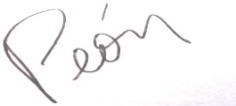 Peón